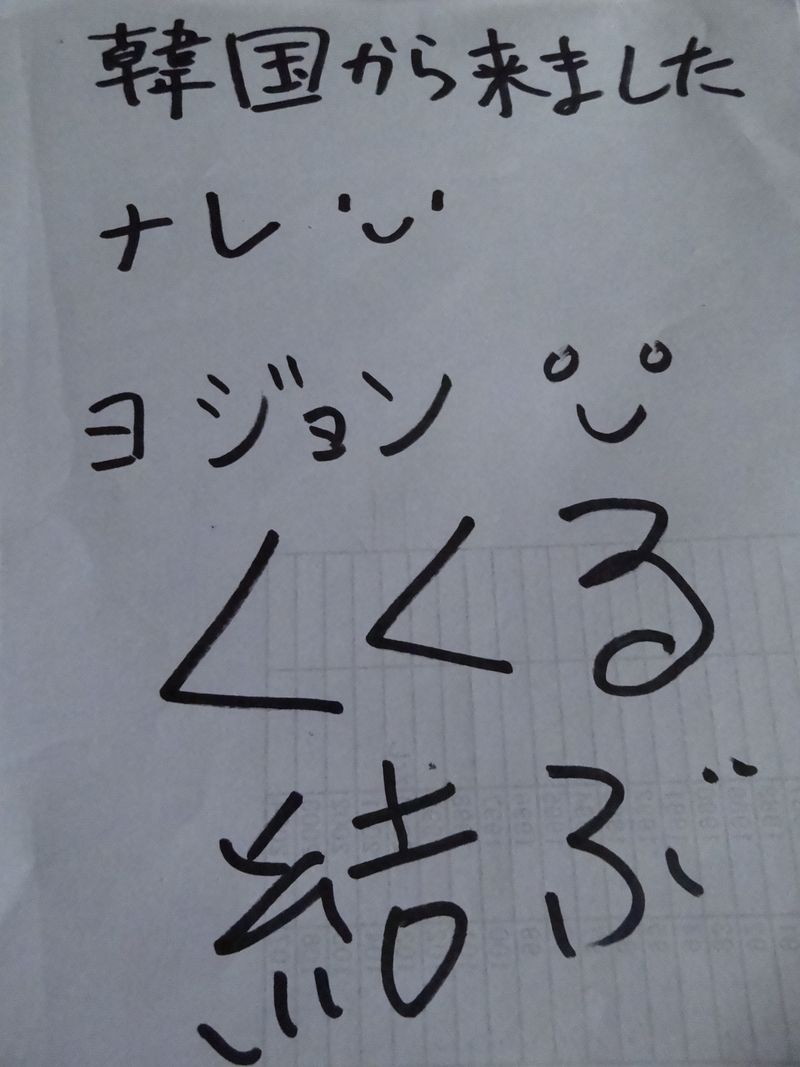 韓国から来ました
ナレ
ヨジョン
くくる
結ぶ